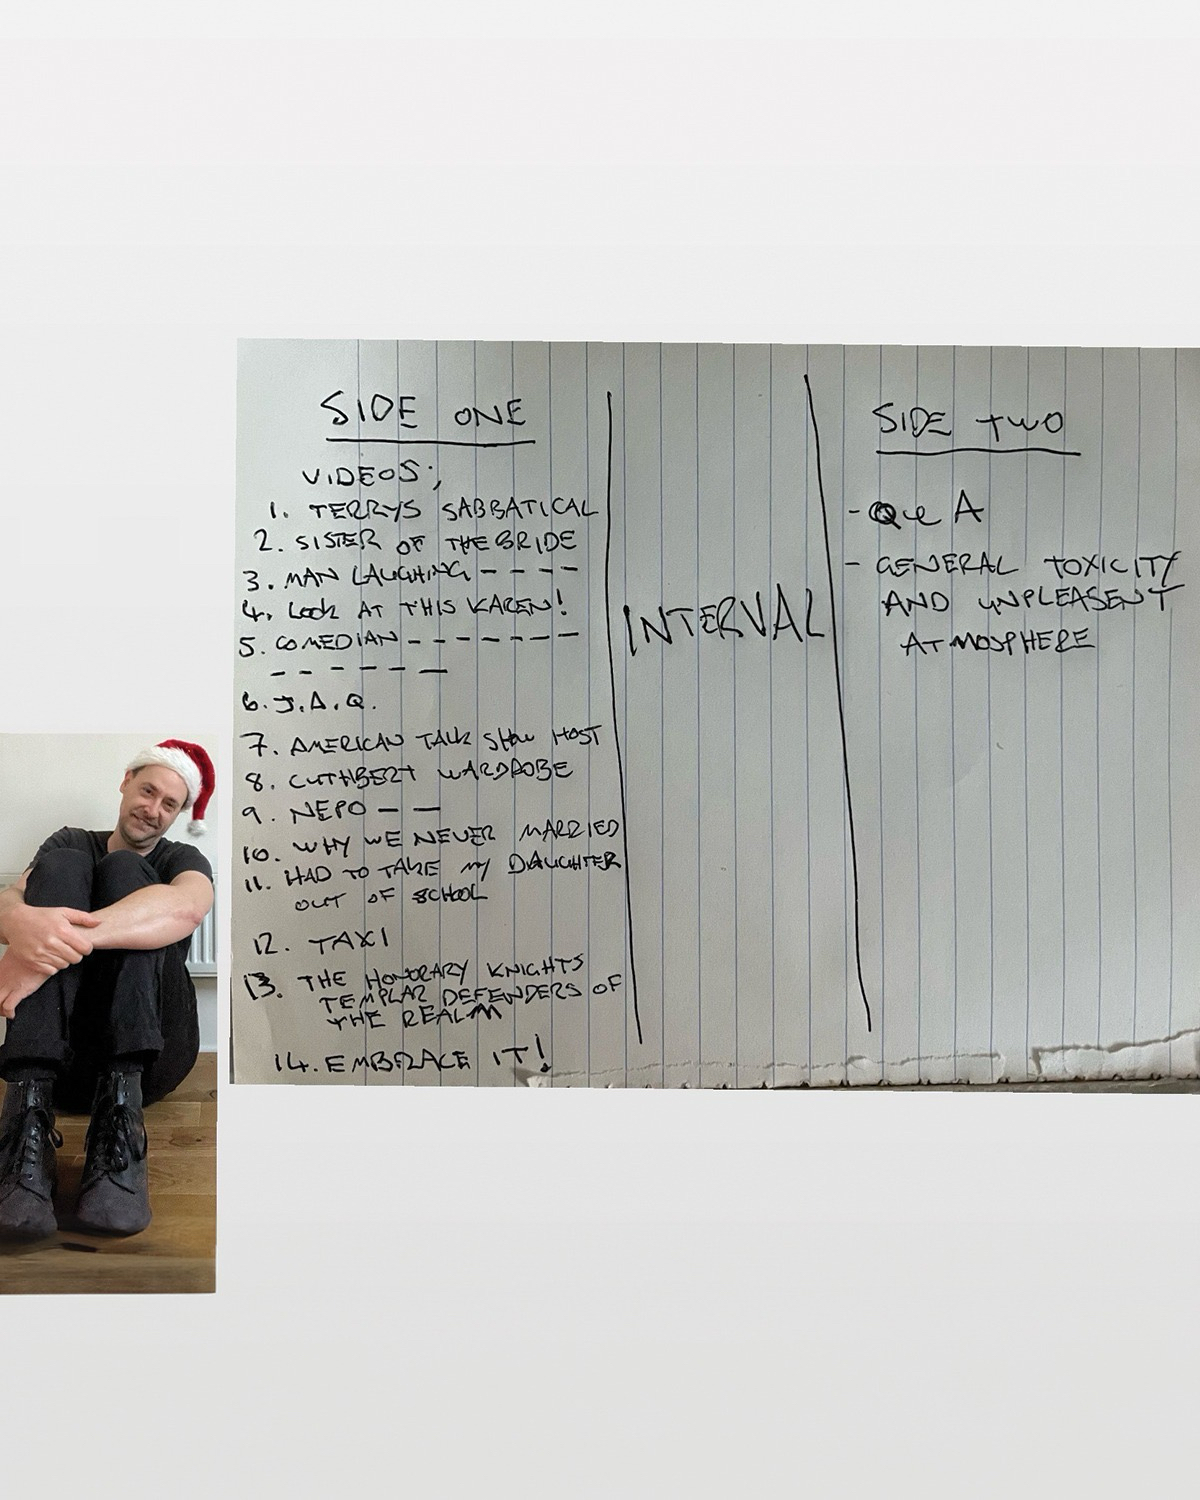 SIDE ONE
VIDEOS;
1. TERRYS SABBATICAL
2. SISTER OF THE BRIDE
3. MAN LAUGHING - - - -
4. LOOK AT THIS KAREN!
5. COMEDIAN - - - - - - -
- - - - - -
6. J.A.Q.
7. AMERICAN TALK SHOW HOST
8. CUTHBERT WARDROBE
9. NEPO - -
10. WHY WE NEVER MARRIED
11. HAD TO TAKE MY DAUGHTER
OUT OF SCHOOL
12. TAXI
13. THE HONORARY KNIGHTS
TEMPLAR DEFENDERS OF
THE REALM
14. EMBRACE IT!
INTERVAL
SIDE TWO
- Q & A
- GENERAL TOXICITY
AND UNPLEASENT
ATMOSPHERE